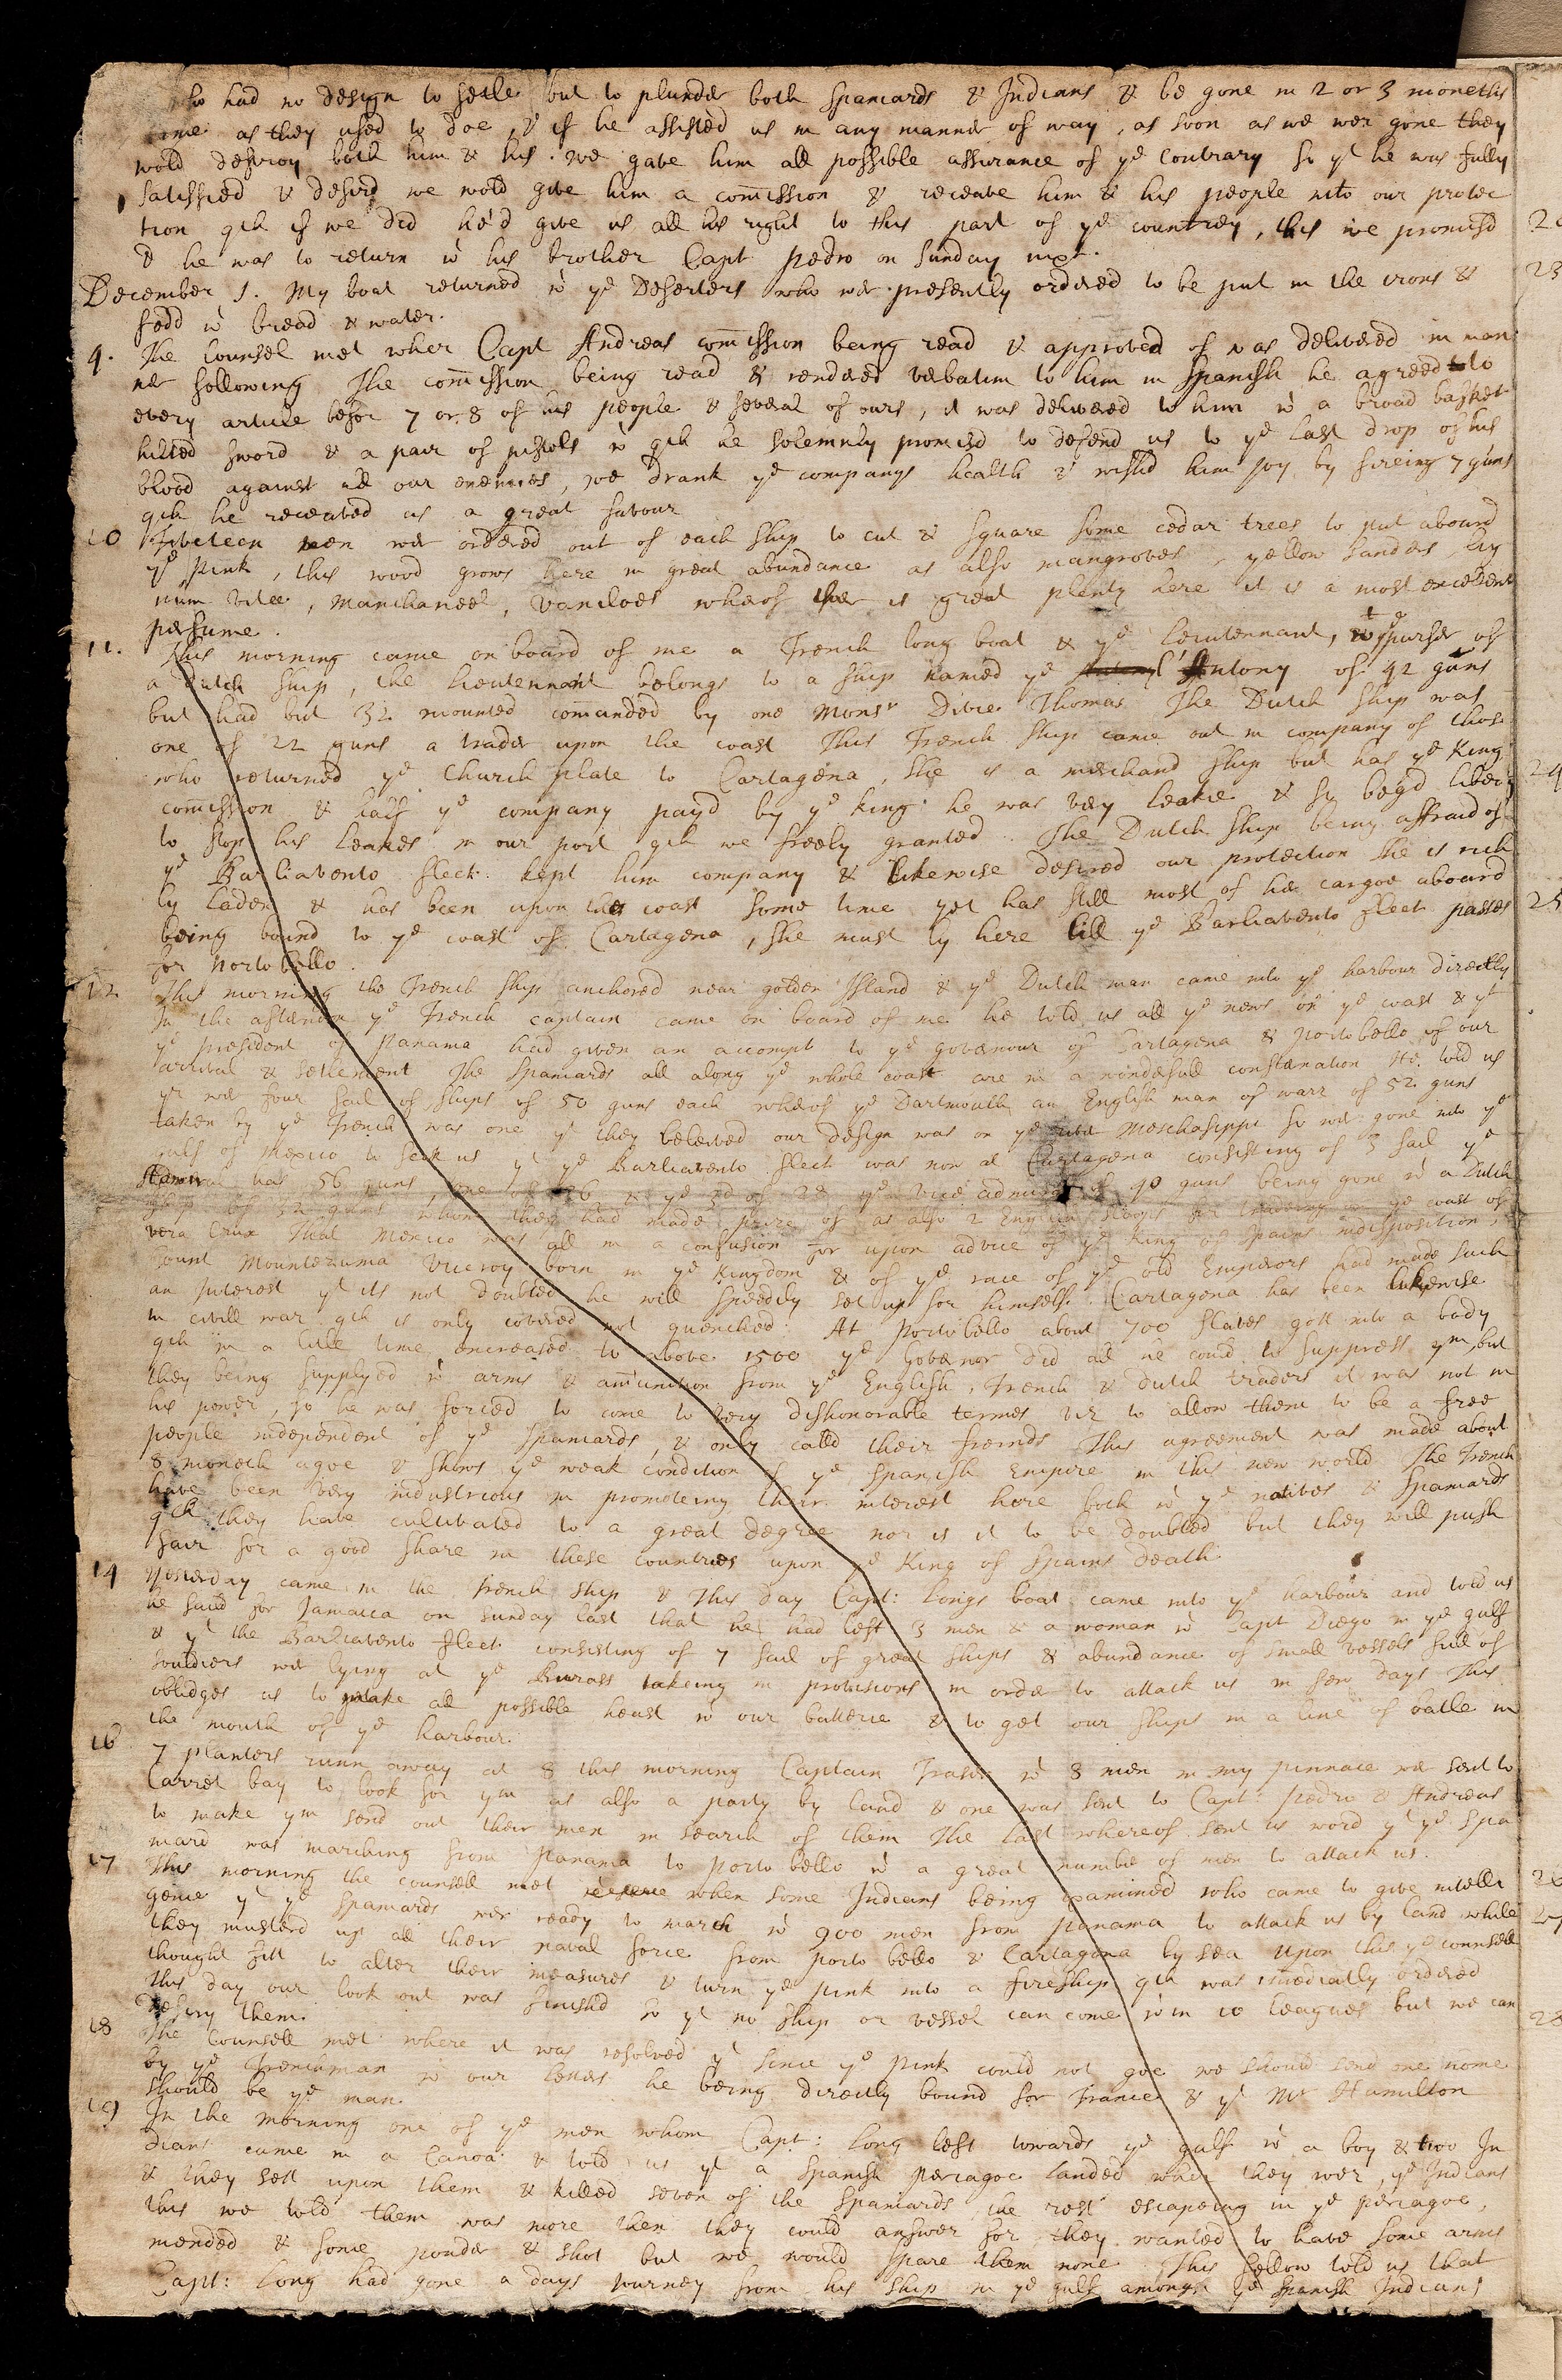 who had no design to setle but to plunder both Spaniards & Indians & be gone in 2 or 3 moneths
time as they used to doe, & if he assisted us in any manner of way, as soon as we wer gone they
wold destroy both him & his. we gave him all possible assurance of ye contrary so yt he was fully
satisfied & desird we wold give him a comission & receave him & his people into our protec
tion qch if we did he'd give us all his right to this part of ye countrey, this we promisd
& he was to return wt his brother Capt Pedro on Sunday next.
December 1. My boat returned wt ye Deserters who wer presently ordered to be put in the irons &
fedd wt bread & water.
9. The Counsel met wher Capt Andreas comission being read & approved of was delivered in man
ner following The comission being read & rendered verbatim to him in Spanish he agreed to
every article befor 7 or 8 of his people & several of ours, it was delivered to him wt a broad basket
hilted sword & a pair of pistols wt qch he solemnly promisd to defend us to ye last drop of his
blood against all our enemies, we drank ye companys health & wishd him joy by fireing 7 guns
qch he receaved as a great favour
10 Fiveteen men wer ordered out of each ship to cut & square some cedar trees to put aboard
ye Pink, this wood grows here in great abundance as also mangroves, yellow sanders, lig
num vitee, Manchaneel, Vaniloes wherof ther is great plenty here it is a most excellent
perfume.
11. This morning came on board of me a French long boat & ye Lieutennant, wt ye purser of
a Dutch ship, the lieutennant belongs to a ship named ye Antony of 42 guns
but had but 32 mounted comanded by one Monsr Ditre Thomas The Dutch ship was
one of 22 guns a trader upon the coast This French ship came out in company of those
who returned ye Church plate to Cartagena, she is a merchand ship but has ye King
comission & half ye company payd by ye king. he was very leakie & so begd liberty
to stop his leakes in our port qch we freely granted. The Dutch ship being affraid of
ye Barliavento fleet kept him company & likewise desired our protection she is rich
ly laden & has been upon this coast some time yet has still most of her cargoe aboard
being bound to ye coast of Cartagena, she must ly here till ye Barliavento fleet passes
for Portobello.
12 This morning the French ship anchored near golden Island & ye Dutch man came into ye harbour directly
In the afternoon ye French captain came on board of me he told us all ye news on ye coast & yt
ye president of Panama had given an accompt to ye governour of Cartagena & Portobello of our
arrival & setlement The Spaniards all along ye whole coast are in a wonderfull consternation He told us
yr wer four sail of ships of 50 guns each wherof ye Dartmouth an English man of warr of 52 guns
taken by ye French was one yt they beleived our design was on ye river Meschasippi so wer gone into ye
gulf of Mexico to seek us yt ye Barliavento fleet was now at Cartagena consisting of 3 sail ye
Admiral has 56 guns, one of 36 & ye 3d of 28 ye vice admiral of 40 guns being gone wt a Dutch
ship of 32 guns whom they had made prize of as also 2 English sloops for tradeing on ye coast of
vera Crux That Mexico was all in a confusion for upon advice of ye King of Spains indisposition,
Count Mountezuma Viceroy born in ye Kingdom & of ye race of ye old Emperors had made such
an Interest yt its not doubted he will speedily set up for himself. Cartagena has been likewise
in civill war qch is only covered not quenched. At Portobello about 700 slaves gott into a body
qch in a litle time encreased to above 1500 ye Governor did all he could to suppress ym, but
they being supplyed wt arms & amunition from ye English, French & Dutch traders it was not in
his power, so he was forced to come to very dishonorable termes viz to allow them to be a free
people independent of ye Spaniards, & only calld their freinds This agreement was made about
8 moneth agoe & shows ye weak condition of ye Spanish Empire in this new world The French
have been very industrious in promoteing their interest here both wt ye natives & Spaniards
qch they have cultivated to a great degree nor is it to be doubted but they will push
fair for a good share in these countries upon ye King of Spains death
14 Yesterday came in the French ship & This day Capt: Longs boat came into ye harbour and told us
he saild for Jamaica on Sunday last that he had left 3 men & a woman wt Capt Diego in ye gulf
& yt the Barliavento fleet consisting of 7 sail of great ships & abundance of small vessels full of
souldiers wer lying at ye Buross takeing in provisions in order to attack us in few days This
obliges us to make all possible heast wt our batterie & to get our ships in a line of batle in
the mouth of ye harbour.
16 7 Planters runn away at 8 this morning Captain Fraser wt 8 men in my pinnace wer sent to
Carret bay to look for ym as also a party by land & one was sent to Capt: Pedro & Andreas
to make ym send out their men in search of them The last whereof sent us word yt ye Spa
niard was marching from Panama to Porto bello wt a great number of men to attack us.
17 This morning the counsell met when some Indians being examined who came to give intelli
gence yt ye Spaniards wer ready to march wt 900 men from Panama to attack us by land while
they musterd up all their naval force from Porto bello & Cartagena by sea Upon this ye counsell
thought fitt to alter their measures & turn ye pink into a fireship qch was imediatly ordered
This day our look out was finishd so yt no ship or vessel can come wtin 10 leagues but we can
descry them.
18 The Counsell met where it was resolved yt since ye pink could not goe we should send one home
by ye Frenchman wt our letters he being directly bound for France & yt Mr Hamilton
should be ye man.
19 In the morning one of ye men whom Capt: Long left towards ye gulf wt a boy & two In
dians came in a Canoa & told us yt a Spanish periagoe landed wher they wer, ye Indians
& they sett upon them & killed seven of the Spaniards, the rest escapeing in ye periagoe,
this we told them was more then they could answer for, they wanted to have some arms
mended & some pouder & shot but we would spare them none This fellow told us that
Capt: Long had gone a days journey from his ship in ye gulf amongst ye Spanish Indians